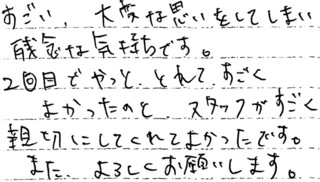 すごい、大変な思いをしてしまい
残念な気持ちです。
2回目でやっと、とれて、すごく
よかったのと、スタッフがすごく
親切にしてくれてよかったです。
また、よろしくお願いします。